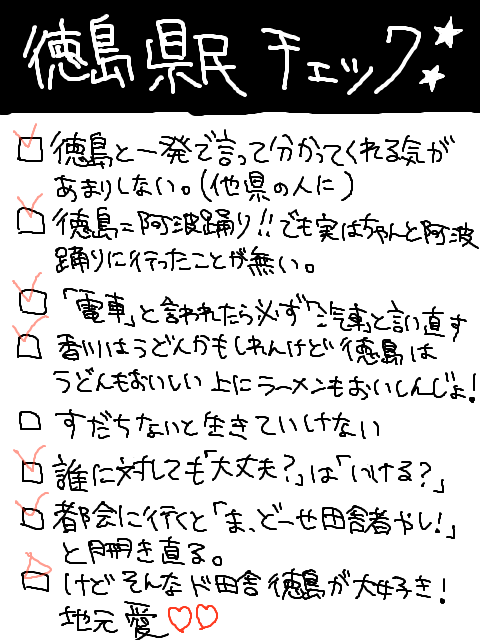 徳島県民チェック
徳島と一発で言って分かってくれる気が
あまりしない。(他県の人に)
徳島=阿波踊り!!でも実はちゃんと阿波
踊りに行ったことが無い。
「電車」と言われたら必ず「汽車」と言い直す
香川はうどんかもしれんけど徳島は
うどんもおいしい上にラーメンもおいしんじょ!
すだちないと生きていけない
誰に対しても「大丈夫?」は「いける?」
都会に行くと「ま、どーせ田舎者やし!」
と開き直る。
けどそんなド田舎徳島が大好き!
地元愛♡♡